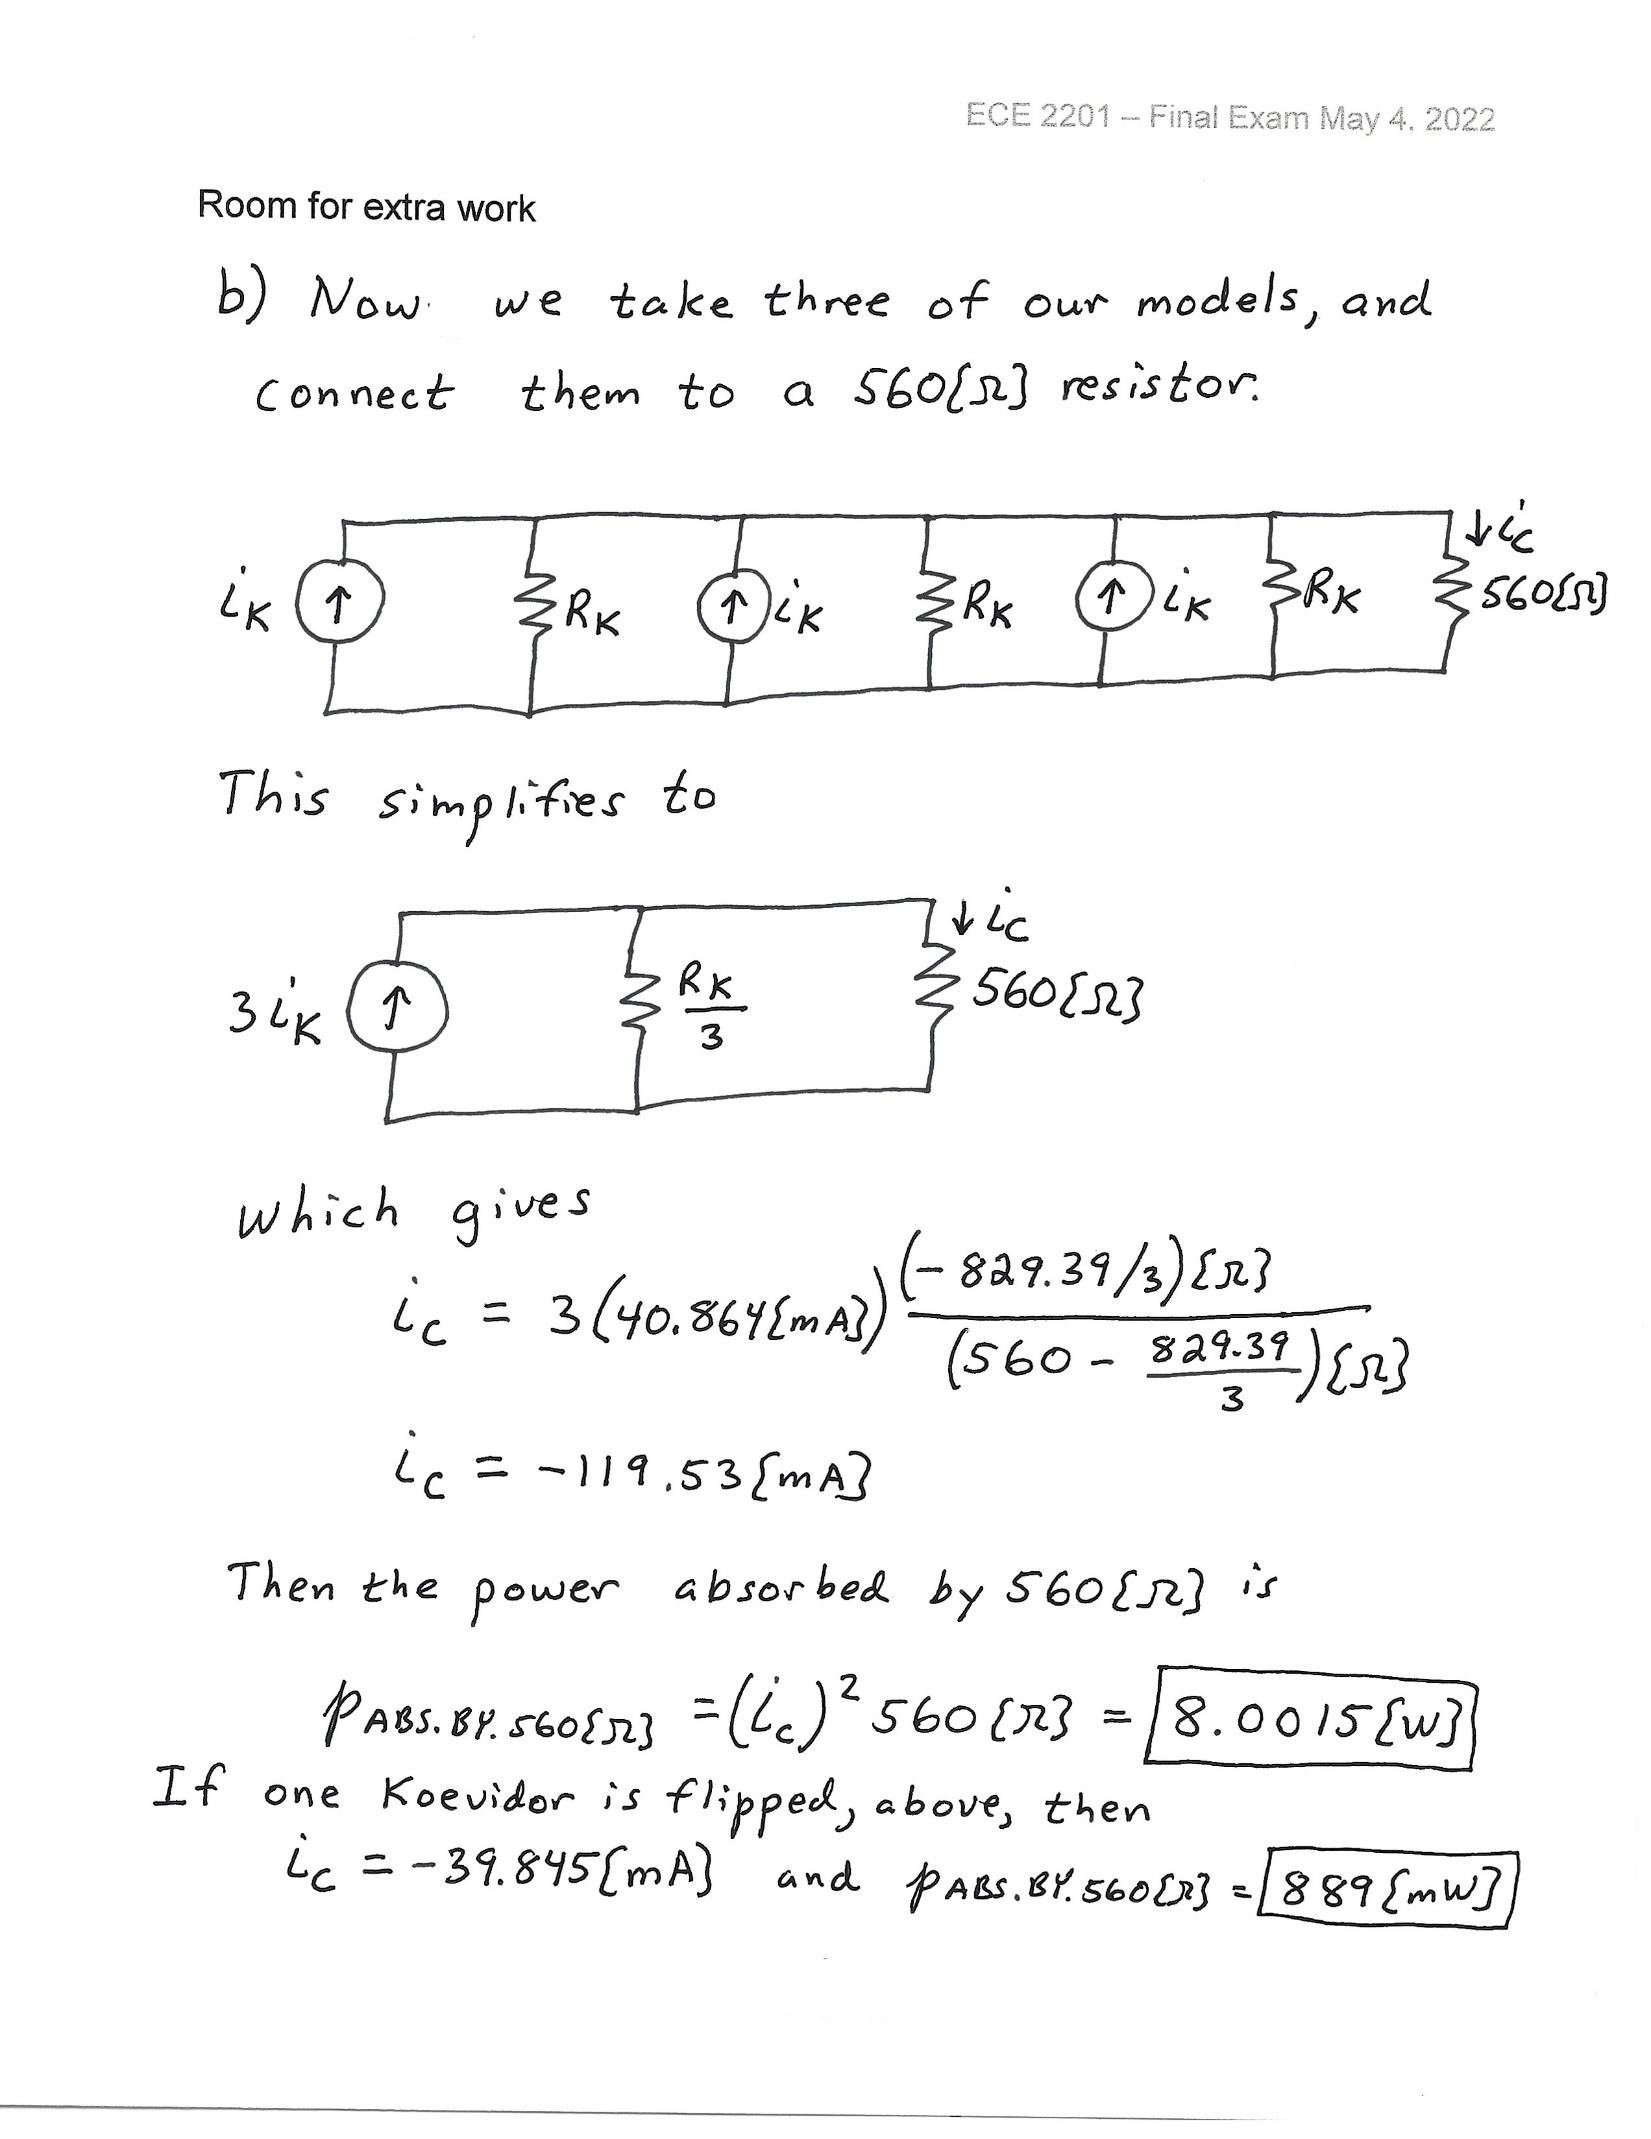 ECE 2201 – Final Exam May 4, 2022
Room for extra work
b) Now we take three of our models, and
connect them to a 560[Ω] resistor.
iK RK iK RK iK RK ↓iC 560[Ω]
This simplifies to
3iK RK/3 ↓iC 560[Ω]
which gives
iC = 3(40.864[mA]) (-829.39/3)[Ω] / (560 - 829.39/3)[Ω]
iC = -119.53[mA]
Then the power absorbed by 560[Ω] is
PABS.BY.560[Ω] = (iC)² 560[Ω] = 8.0015[W]
If one Koevidor is flipped, above, then
iC = -39.845[mA] and PABS.BY.560[Ω] = 889[mW]